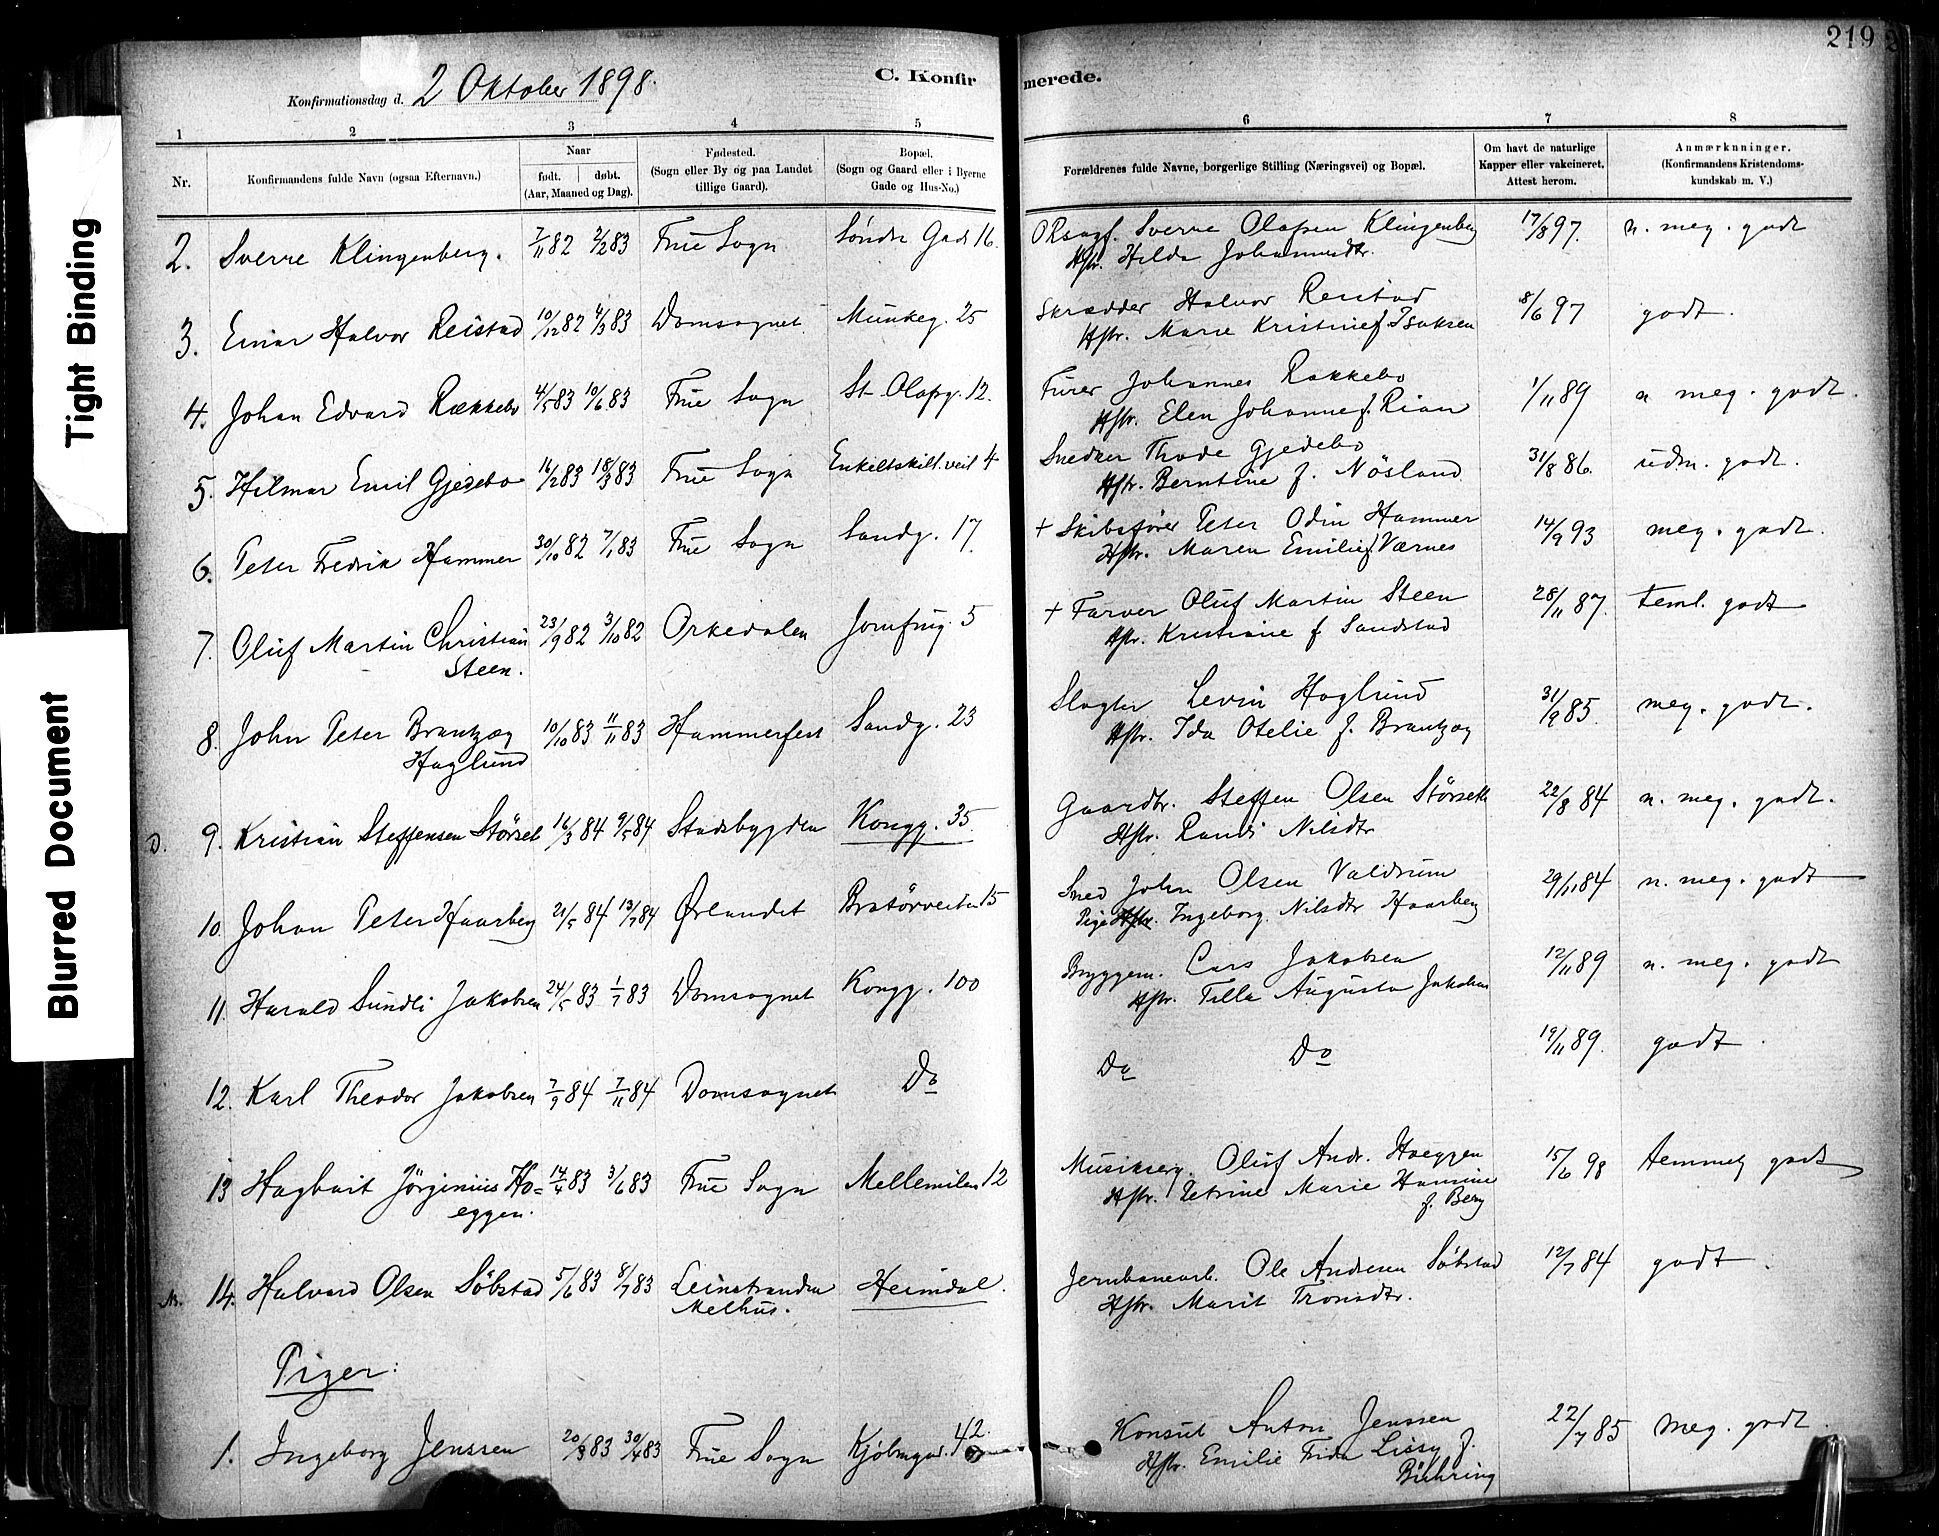 Tight Binding
Blurred Document
219
Konfirmationsdag d. 2 Oktober 1898.
C. Konfirmerede.
1 2 3 4 5 6 7 8
Nr.
Konfirmandens fulde Navn (ogsaa Efternavn.)
Naar
født. døbt.
(Aar, Maaned og Dag).
Fødested.
(Sogn eller By og paa Landet
tillige Gaard).
Bopæl.
(Sogn og Gaard eller i Byerne
Gade og Hus-No.)
Forældrenes fulde Navne, borgerlige Stilling (Næringsvei) og Bopæl.
Om havt de naturlige
Kapper eller vakcineret.
Attest herom.
Anmærknninger.
(Konfirmandens Kristendoms-
kundskab m. V.)
2. Sverre Klingenberg. 7/11 82 2/2 83 Frue Sogn Søndre Gade 16. ORsagf. Sverre Olafsen Klingenberg 17/8 97. n. meg. godt
Hstr. Hilda Johannesdtr.
3. Einar Halvor Reistad 10/12 82 4/3 83 Domsognet Munkeg. 25 Skrædder Halvor Reistad 8/6 97 godt.
Hstr. Marie Kristine f. Isaksen
4. Johan Edvard Rækkebo 4/5 83 10/6 83 Frue Sogn St Olafsg. 12. Furer Johannes Rakkebo 1/11 89 n meg. godt.
Hstr. Elen Johanne f. Rian
5. Hilmar Emil Gjedebo 16/2 83 18/3 83 Frue Sogn Enkeltskill.veit 4 Snedker Thode Gjedebo 31/8 86. udm. godt.
Hstr. Berntine f. Nösland
6. Peter Fredrik Hammer 30/10 82 7/1 83 Frue Sogn Sandg. 17. + Skibsfører Peter Odin Hammer 14/9 93 meg. godt.
Hstr. Maren Emilie f. Værnes
7. Oluf Martin Christian 23/9 82 3/10 82 Orkedalen Jomfrug. 5 + Farver Oluf Martin Steen 28/11 87. teml. godt
Steen. Hstr. Kristiane f Sandstad
8. John Peter Brantzæg 10/10 83 11/11 83 Hammerfest Sandg. 23 Slagter Levin Hoglund 31/9 85. meg. godt.
Haglund Hstr. Ida Otelie f. Brantzæg
D. 9. Kristian Steffensen Størset 16/3 84 9/5 84 Stadsbygden Kongg. 35. Gaardbr. Steffen Olsen Størseth 22/8 84 n. meg. godt.
Hstr. Randi Nilsdtr
10. Johan Peter Haarberg 21/5 84 13/7 84 Ørlandet Bratörveiten 15 Sned John Olsen Valdrum 29/11 84 n. meg. godt
Pige Hstr. Ingeborg Nilsdtr Haarberg
11. Harald Sundli Jakobsen 24/5 83 1/7 83 Domsognet Kongg. 100 Bryggem. Lars Jakobsen 12/11 89 n. meg. godt
Hstr. Tilla Augusta Jakobsen
12. Karl Theodor Jakobsen 7/9 84 7/11 84 Domsognet Do Do Do 19/11 89. godt.
13 Hagbart Jörginius Ho= 14/4 83 3/6 83 Frue Sogn Mellemilen 12 Musikserg. Oluf Andr. Hoeggen 15/6 98 temmelig godt
eggen. Hstr. Petrine Marie Hamine
f. Berg
14. Halvard Olsen Söbstad 5/6 83 8/7 83 Leinstranden Heimdal. Jernbanearb. Ole Andersen Söbstad 12/7 84 godt.
Melhus. Hstr. Marit Tronsdtr.
Piger:
1. Ingeborg Jenssen 20/3 83 30/4 83 Frue Sogn Kjöbmgd. 42. Konsul Anton Jenssen 22/7 85 meg. godt.
Hstr. Emilie Frida Lissy f.
Bühring